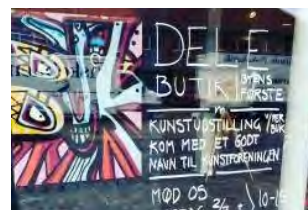 DELE
BUTIK BYENS
FØRSTE
KUNSTUDSTILLING
KOM MED ET GODT
NAVN TIL KUNSTFORENINGEN
MØD OS
10-15